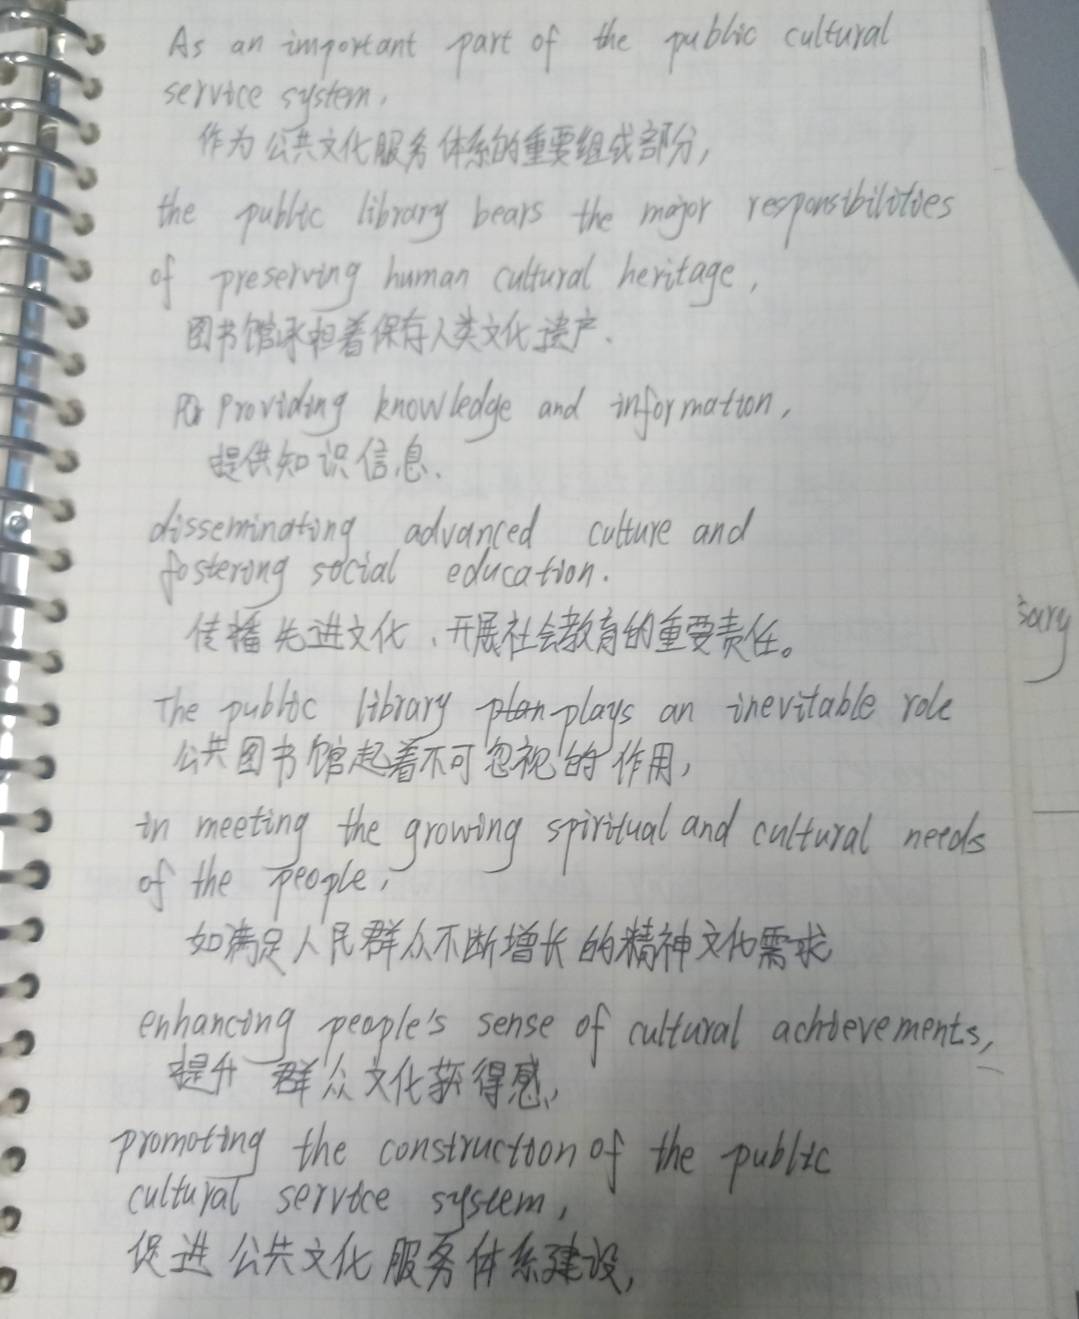 As an important part of the public cultural
service system,
作为公共文化服务体系的重要组成部分,
the public library bears the major responsibilities
of preserving human cultural heritage,
图书馆承担着保存人类文化遗产、
Providing knowledge and information,
提供知识信息、
disseminating advanced culture and
fostering social education.
传播先进文化、开展社会教育的重要责任。
sary
The public library plan plays an inevitable role
公共图书馆起着不可忽视的作用,
in meeting the growing spiritual and cultural needs
of the people,
如满足人民群众不断增长的精神文化需求
enhancing people's sense of cultural achievements,
提升群众文化获得感、
promoting the construction of the public
cultural service system,
促进公共文化服务体系建设,